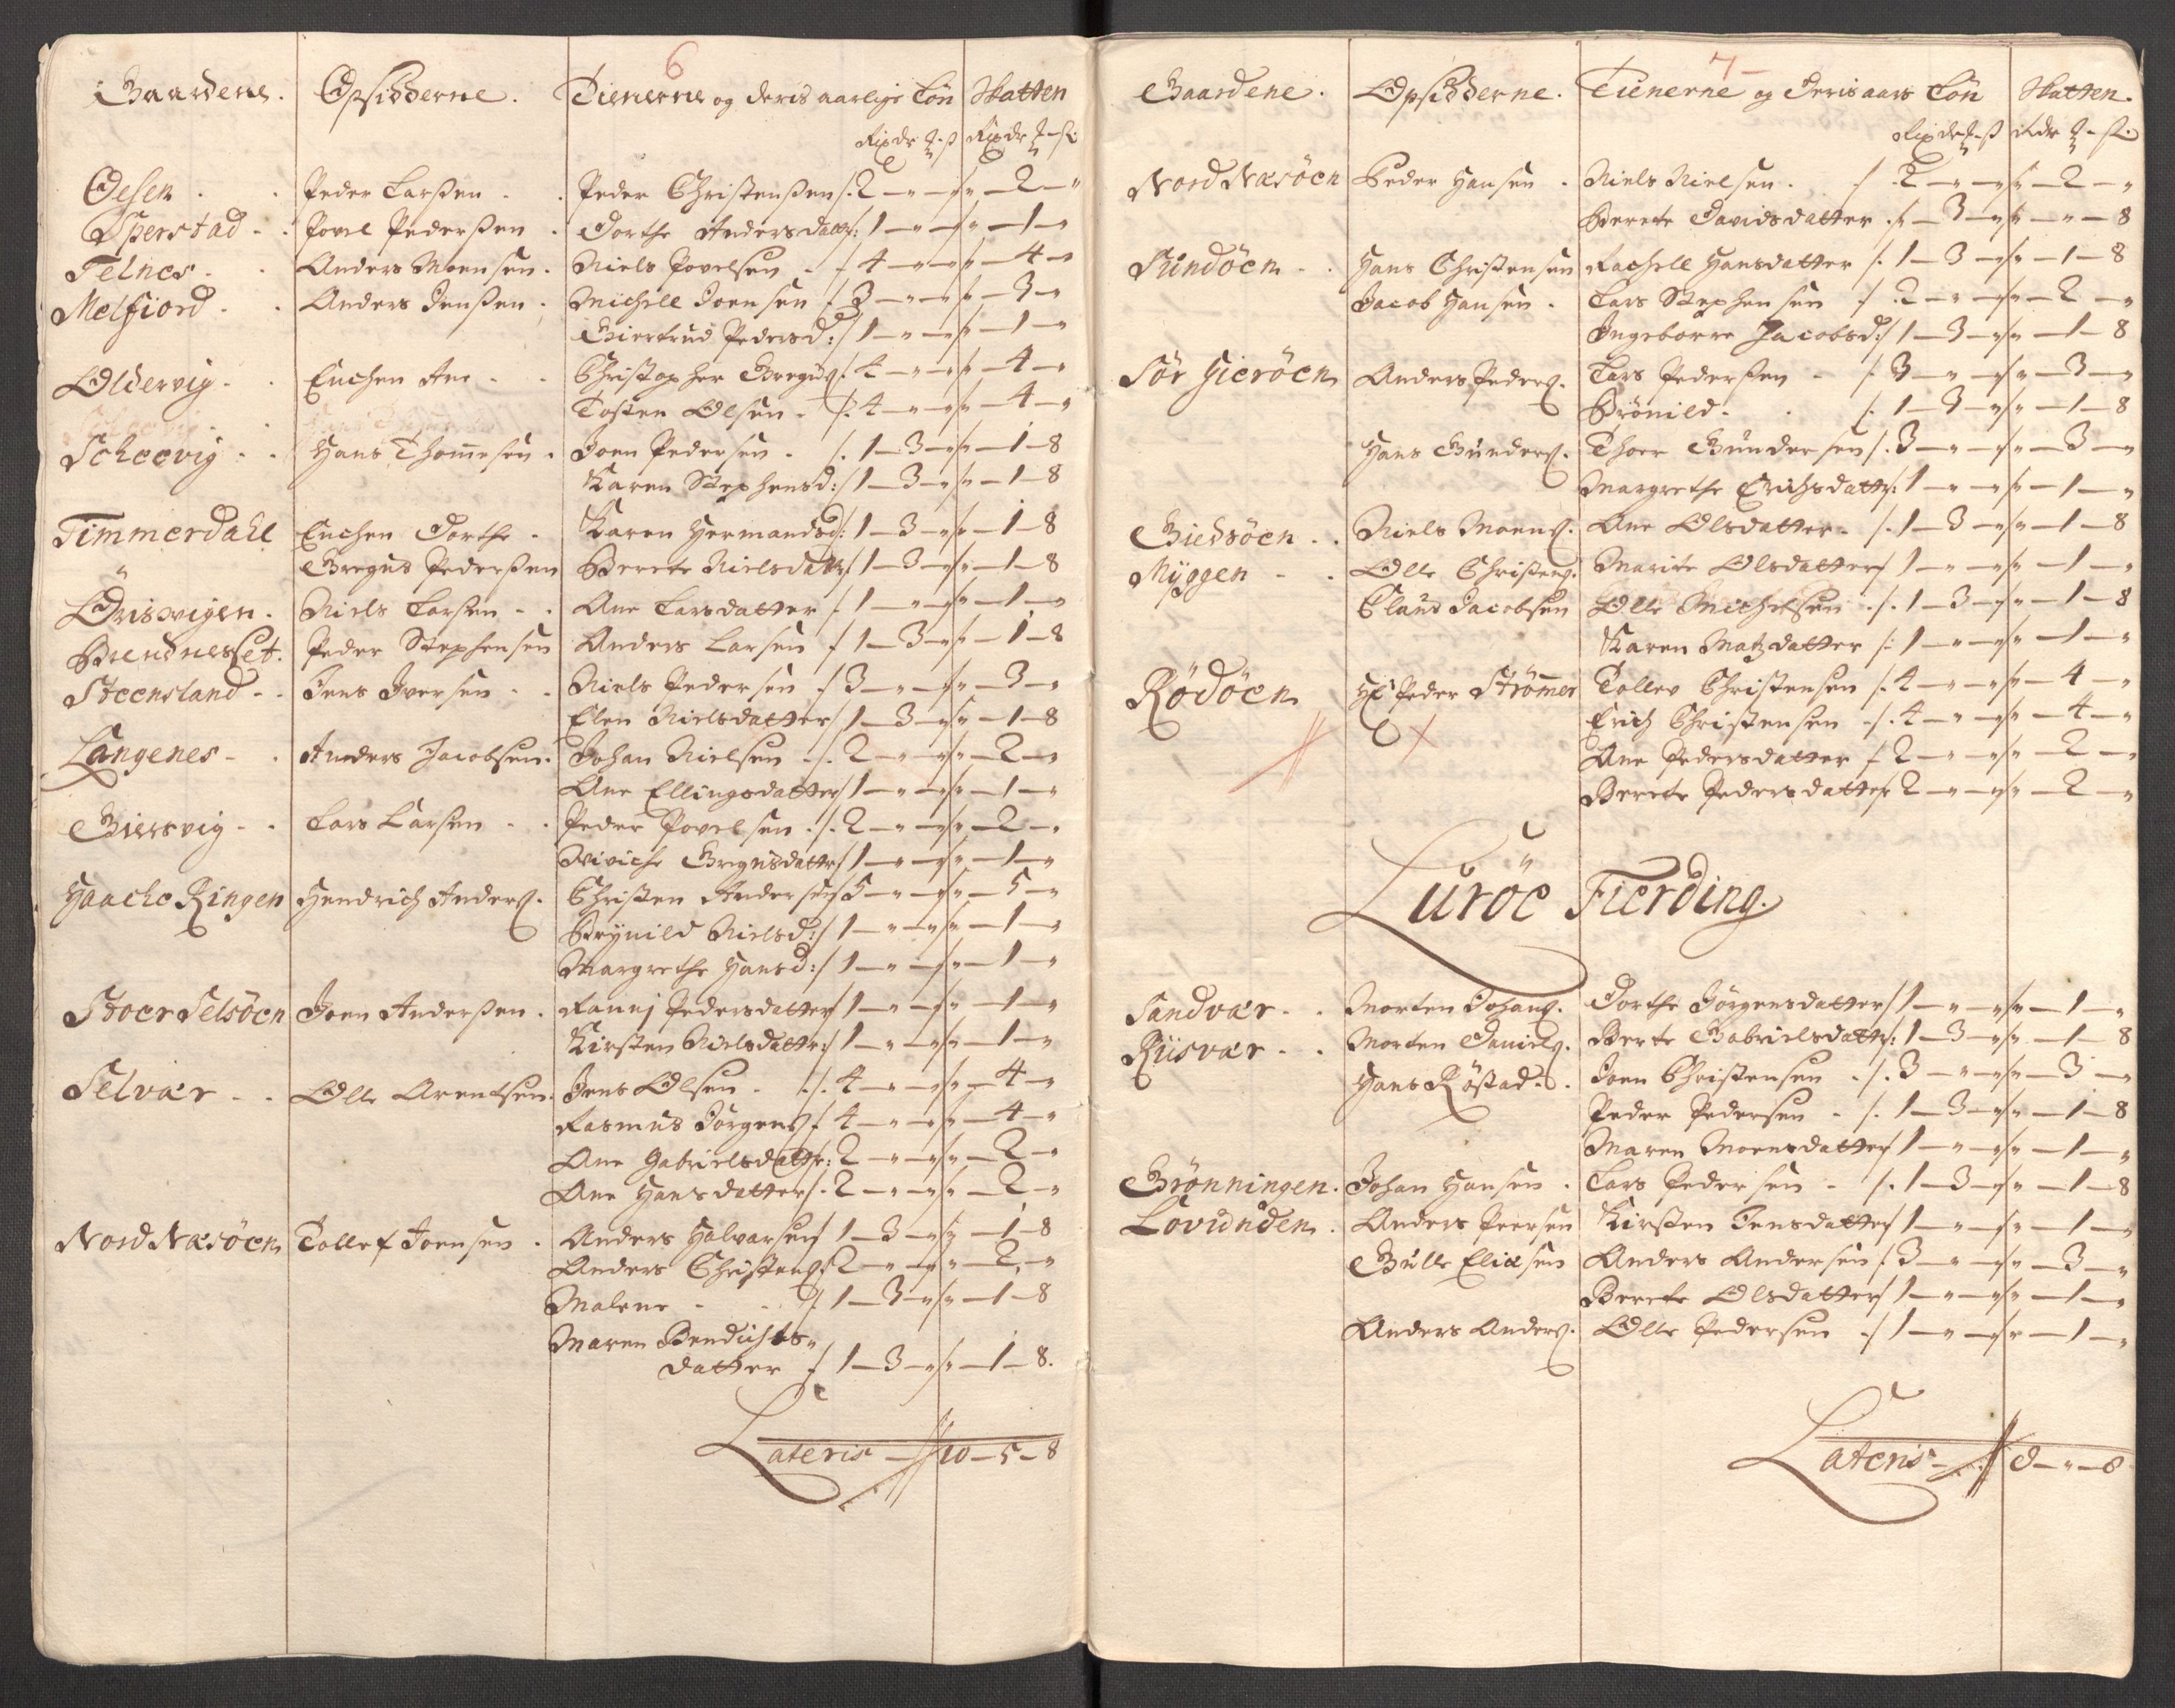 6
Gaardene. Opsidderne. Tienerne og deris aarlige Løn Skatten
Rixdr ß Rixdr ß
Oelsen Peder Larßen Peder Christenßen 2 — " — " " — 2 — "
Øperstad Povel Pederßen Dorthe Andersdattr: 1 — " — " " — 1 — "
Telnes Anders Monsen Niels Povelsen 4 — " — " " — 4 — "
Melfiord Anders Jenßen Michell Joensen 3 — " — " " — 3 — "
Giertrud Pedersd: 1 — " — " " — 1 — "
Oldervig Enchen Ane Christopher Greguß. 4 — " — " " — 4 — "
Tosten Olsen 4 — " — " " — 4 — "
Scheevig Hans Thommesen Joen Pedersen 1 — 3 — " " — 1 — 8
Karen Stephensd: 1 — 3 — " " — 1 — 8
Timmerdahl Enchen Dorthe Karen Hermandsd: 1 — 3 — " " — 1 — 8
Gregus Pederßen Berete Nielsdattr 1 — 3 — " " — 1 — 8
Örisvigen Niels Larsen Ane Larsdatter 1 — " — " " — 1 — "
Brendneslet. Peder Stephensen Anders Larsen 1 — 3 — " " — 1 — 8
Steensland Jens Iversen Niels Pedersen 3 — " — " " — 3 — "
Elen Nielsdatter 1 — 3 — " " — 1 — 8
Langenes Anders Jacobsen Johan Nielsen 2 — " — " " — 2 — "
Ane Ellingsdatter 1 — " — " " — 1 — "
Giersvig Lars Larsen Peder Povelsen 2 — " — " " — 2 — "
Viviche Gregusdattr 1 — " — " " — 1 — "
Haache Ringen Hendrich Anders. Christen Andersen 5 — " — " " — 5 — "
Brynild Nielsd: 1 — " — " " — 1 — "
Margrethe Hansd: 1 — " — " " — 1 — "
Stoer Selsöen Joen Anderßen Rannj Pedersdatter 1 — " — " " — 1 — "
Kirsten Nielsdattr: 1 — " — " " — 1 — "
Selvær Olle Arentsen Jens Olsen 4 — " — " " — 4 — "
Rasmus Jørgens. 4 — " — " " — 4 — "
Ane Gabrielsdattr: 2 — " — " " — 2 — "
Ane Hansdatter 2 — " — " " — 2 — "
Nord Næsöen Tollef Joensen Anders Halvorsen 1 — 3 — " " — 1 — 8
Anders Christens. 2 — " — " " — 2 — "
Malene 1 — 3 — " " — 1 — 8
Maren Bendichts
datter 1 — 3 — " " — 1 — 8.
Lateris 10 — 5 — 8
7
Gaardene. Opsidderne. Tienerne og deris aars Løn Skatten.
Rixdr ß Rdr ß
Nord Næsöen Peder Hansen Niels Nielsen 2 — " — " " — 2 — "
Berete Davidsdatter " — 3 — " " — " — 8
Rindöen Hans Christensen Rachell Hansdatter 1 — 3 — " " — 1 — 8
Jacob Hansen Lars Stephensen 2 — " — " " — 2 — "
Ingeborre Jacobsd: 1 — 3 — " " — 1 — 8
Sör Gieröen Anders Peders. Lars Pederßen 3 — " — " " — 3 — "
Brönild 1 — 3 — " " — 1 — 8
Hans Gunders. Thoer Gundersen 3 — " — " " — 3 — "
Margrethe Erichsdattr: 1 — " — " " — 1 — "
Giedsöen Niels Moens. Ane Olsdatter 1 — 3 — " " — 1 — 8
Myggen Olle Christens. Marite Olsdatter 1 — " — " " — 1 — "
Claus Jacobsen Olle Michelsen 1 — 3 — " " — 1 — 8
Karen Matzdatter 1 — " — " " — 1 — "
Rödöen Hr Peder Strömmer Tollev Christensen 4 — " — " " — 4 — "
Erich Christensen 4 — " — " " — 4 — "
Ane Pedersdatter 2 — " — " " — 2 — "
Berete Pedersdatter 2 — " — " " — 2 — "
Luröe Fierding.
Sandvær Morten Johans. Dorthe Jörgensdatter 1 — " — " " — 1 — "
Riisvær Morten Daniels. Berte Gabrielsdattr: 1 — 3 — " " — 1 — 8
Hans Røstad Joen Christensen 3 — " — " " — 3 — "
Peder Pedersen 1 — 3 — " " — 1 — 8
Maren Moensdatter 1 — " — " " — 1 — "
Grönningen Johan Hansen Lars Pedersen 1 — 3 — " " — 1 — 8
Lovunden Anders Peersen Kirsten Jensdatter 1 — " — " " — 1 — "
Gulle Eliasen Anders Andersen 3 — " — " " — 3 — "
Berete Olsdatter 1 — " — " " — 1 — "
Anders Anders. Olle Pedersen 1 — " — " " — 1 — "
Lateris